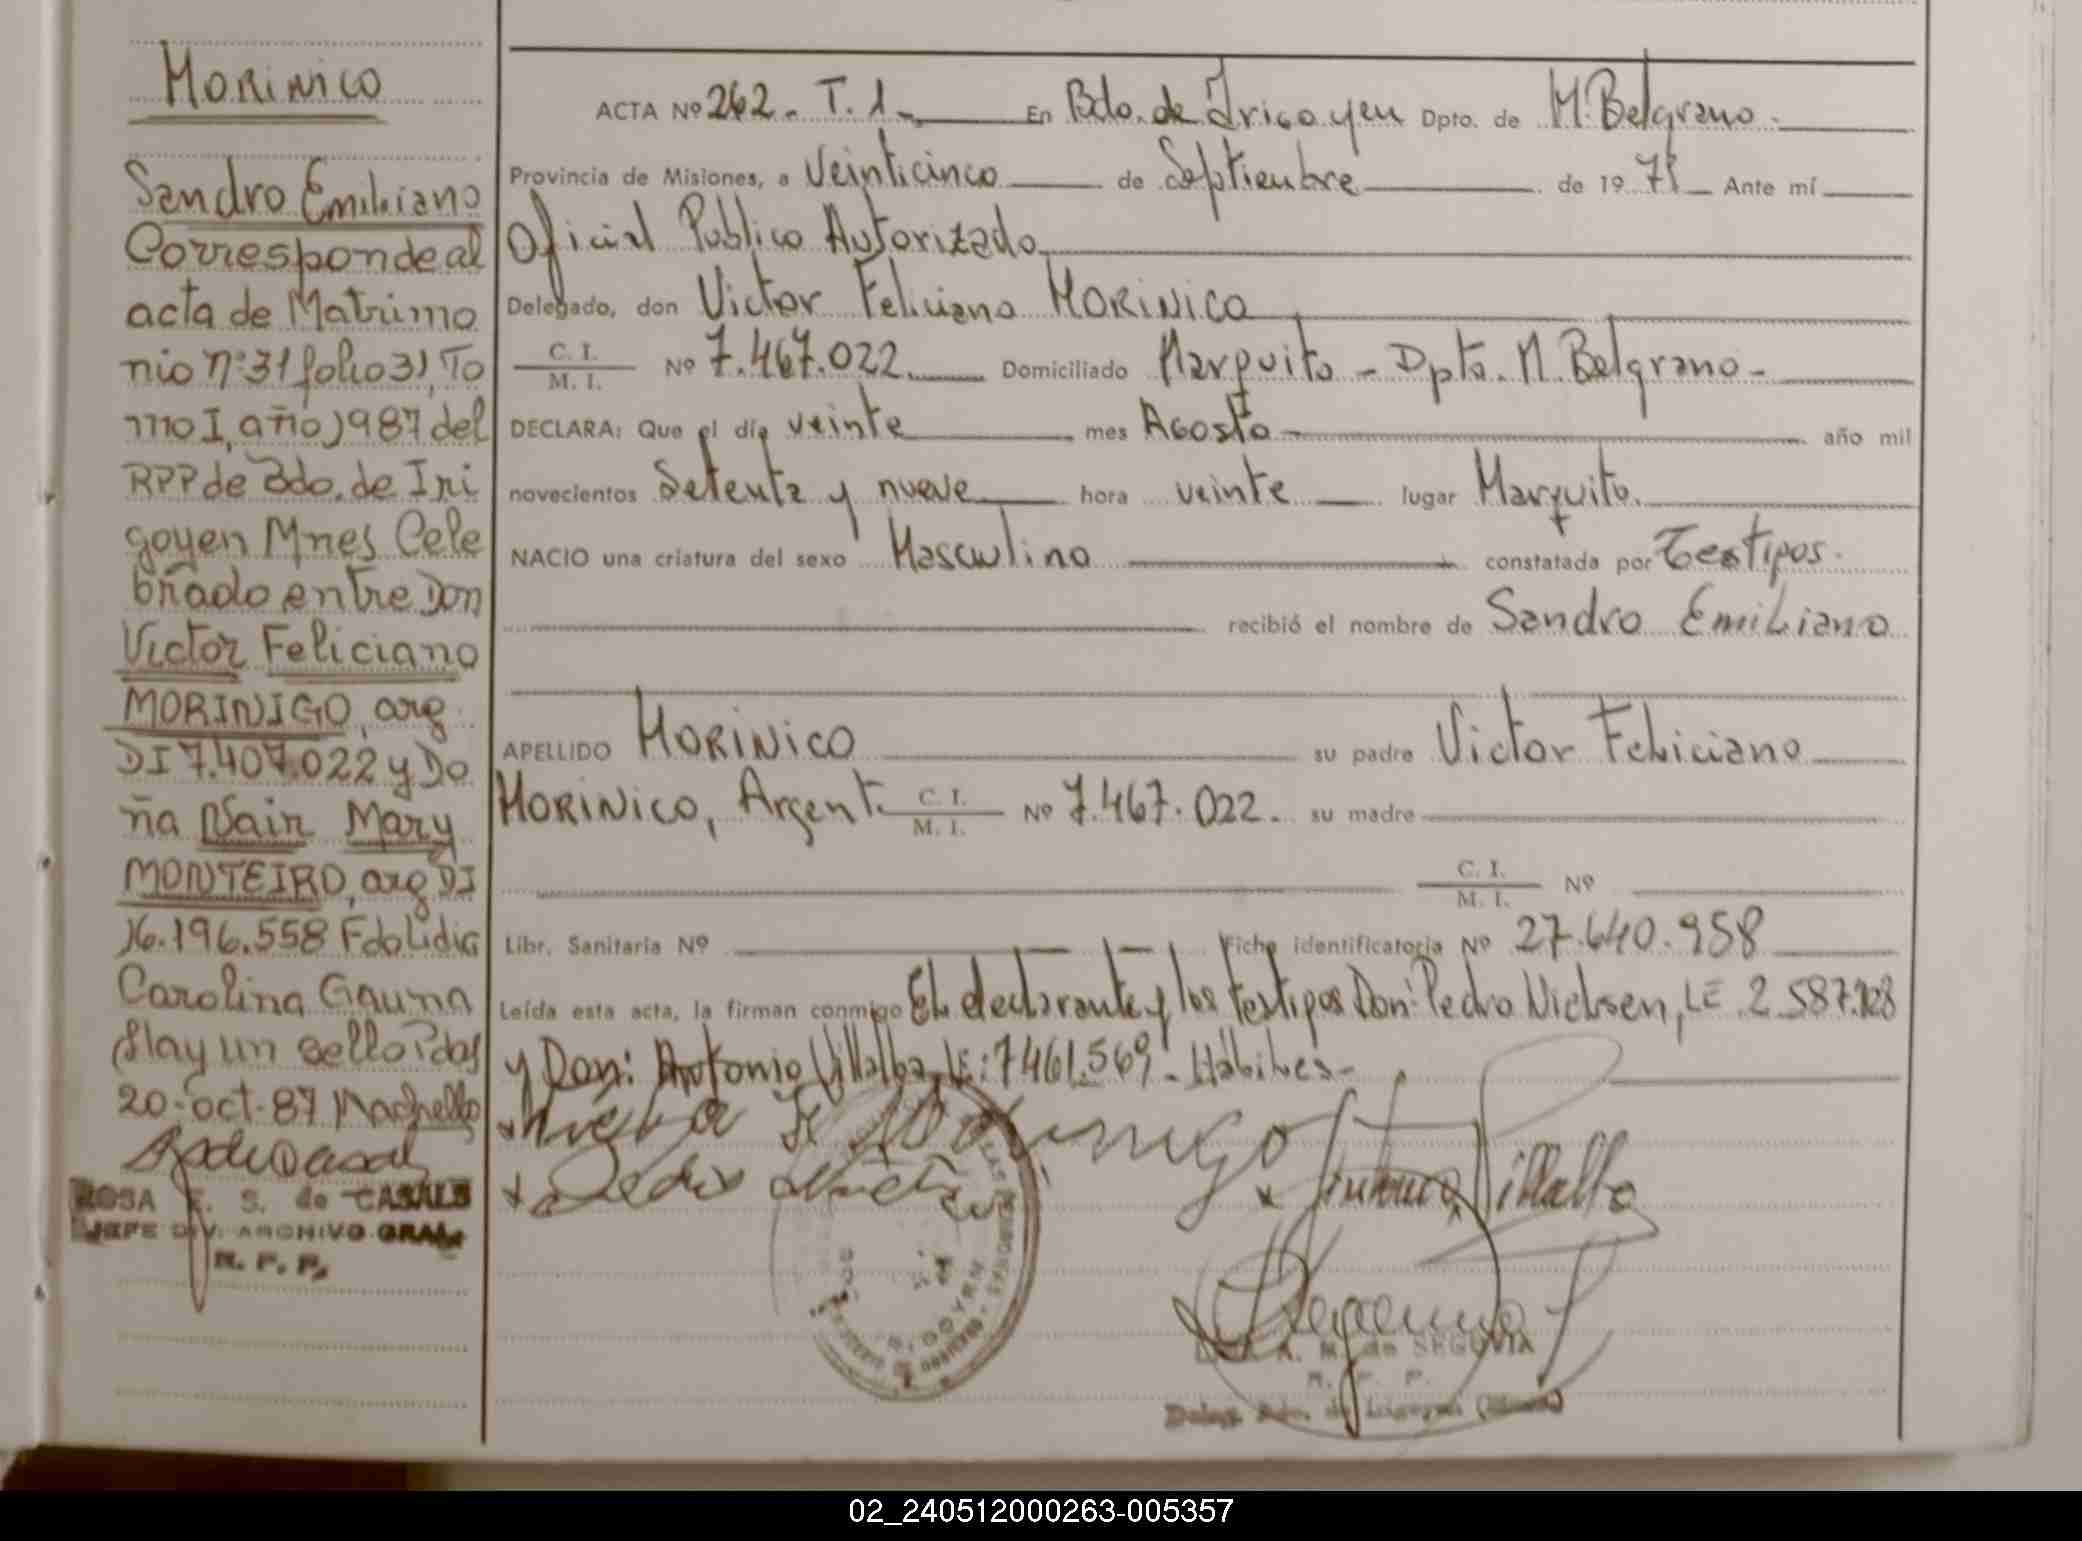 MORINICO
Sandro Emiliano
Corresponde al
acta de Matrimo
nio nº 31 folio 31, To
mo I, año 1987 del
RPP de Bdo. de Iri
goyen Mnes Cele
brado entre Don
Victor Feliciano
MORINIGO, arg
DI 7.407.022 y Do
ña Nair Mary
MONTEIRO, arg DI
16.196.558 Fdo Lidia
Carolina Gauna
Hay un sello Pdas
20-oct-87
ROSA E. S. de CASALS
JEFE DIV. ARCHIVO GRAL.
R. P. P.
ACTA Nº 262 - T. 1 - En Bdo. de Irigoyen Dpto. de M. Belgrano -
Provincia de Misiones, a Veinticinco de Septiembre de 19 79 Ante mí
Oficial Público Autorizado
Delegado, don Victor Feliciano MORINICO
C. I.
M. I. Nº 7.467.022 Domiciliado Marquito - Dpto. M. Belgrano -
DECLARA: Que el día veinte mes Agosto año mil
novecientos Setenta y nueve hora veinte lugar Marquito.
NACIO una criatura del sexo Masculino constatada por Testigos.
recibió el nombre de Sandro Emiliano
APELLIDO MORINICO su padre Victor Feliciano
MORINICO, Argent. C. I.
M. I. Nº 7.467.022. su madre
C. I.
M. I. Nº
Libr. Sanitaria Nº Ficha identificatoria Nº 27.640.958
Leída esta acta, la firman conmigo El declarante y los testigos Don: Pedro Nielsen, LE 2.587.128
y Don: Antonio Villalba, LE: 7461.569 - Hábiles -
Antonio Villalba
A. M. de SEGOVIA
R. P. P.